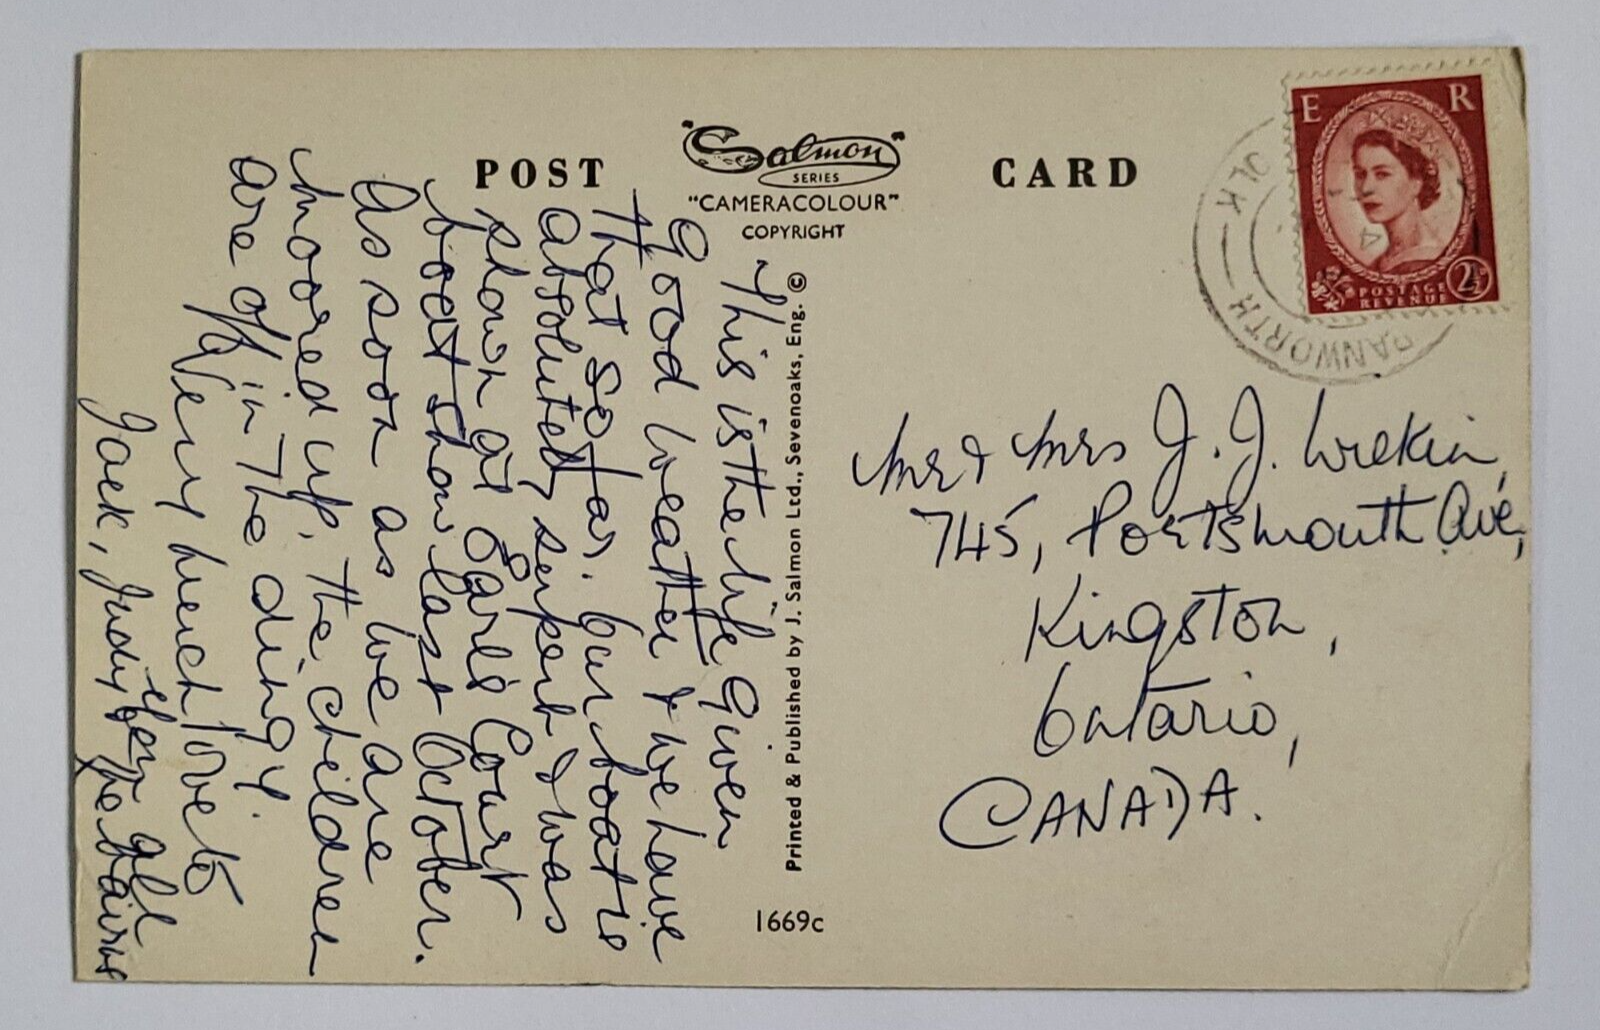 POST CARD
"Salmon"
SERIES
"CAMERACOLOUR"
COPYRIGHT
This is the life Given
Good weather & we have
that so far. Our boat is
absolutely superb & was
shown at Earls Court
boat show last October.
As soon as we are
moored up, the children
are off in the dinghy.
Very much love to
you all
Jack, Judy & the bairns
Printed & Published by J. Salmon Ltd., Sevenoaks, Eng. ©
1669c
E R
POSTAGE
REVENUE
2½
RANWORTH
OLK
Mr & Mrs J. J. Wilkin,
745, Portsmouth Ave,
Kingston,
Ontario,
CANADA.